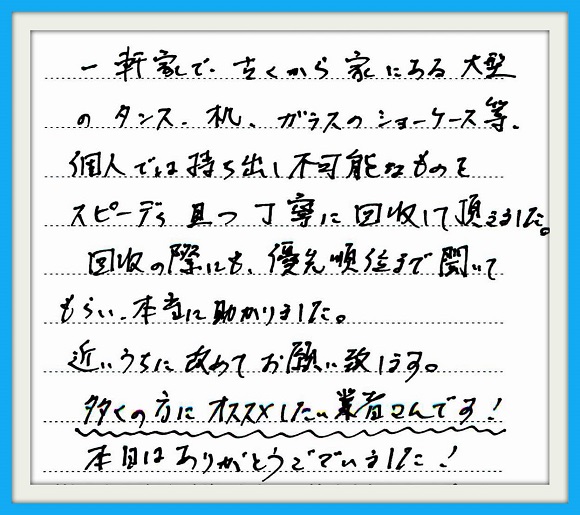 一軒家で、古くから家にある大型
のタンス、机、ガラスのショーケース等、
個人では持ち出し不可能なものを
スピーディ且つ丁寧に回収して頂きました。
回収の際にも、優先順位まで聞いて
もらい、本当に助かりました。
近いうちに改めてお願い致します。
多くの方にオススメしたい業者さんです！
本日はありがとうございました！